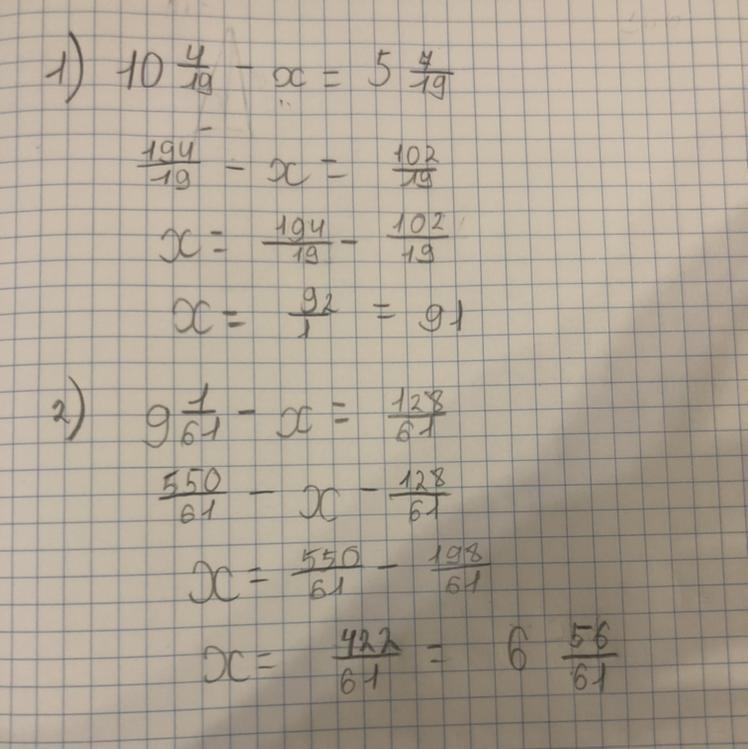 1) 10 4/19 - x = 5 7/19
194/19 - x = 102/19
x = 194/19 - 102/19
x = 92/1 = 91
2) 9 1/61 - x = 128/61
550/61 - x - 128/61
x = 550/61 - 198/61
x = 422/61 = 6 56/61